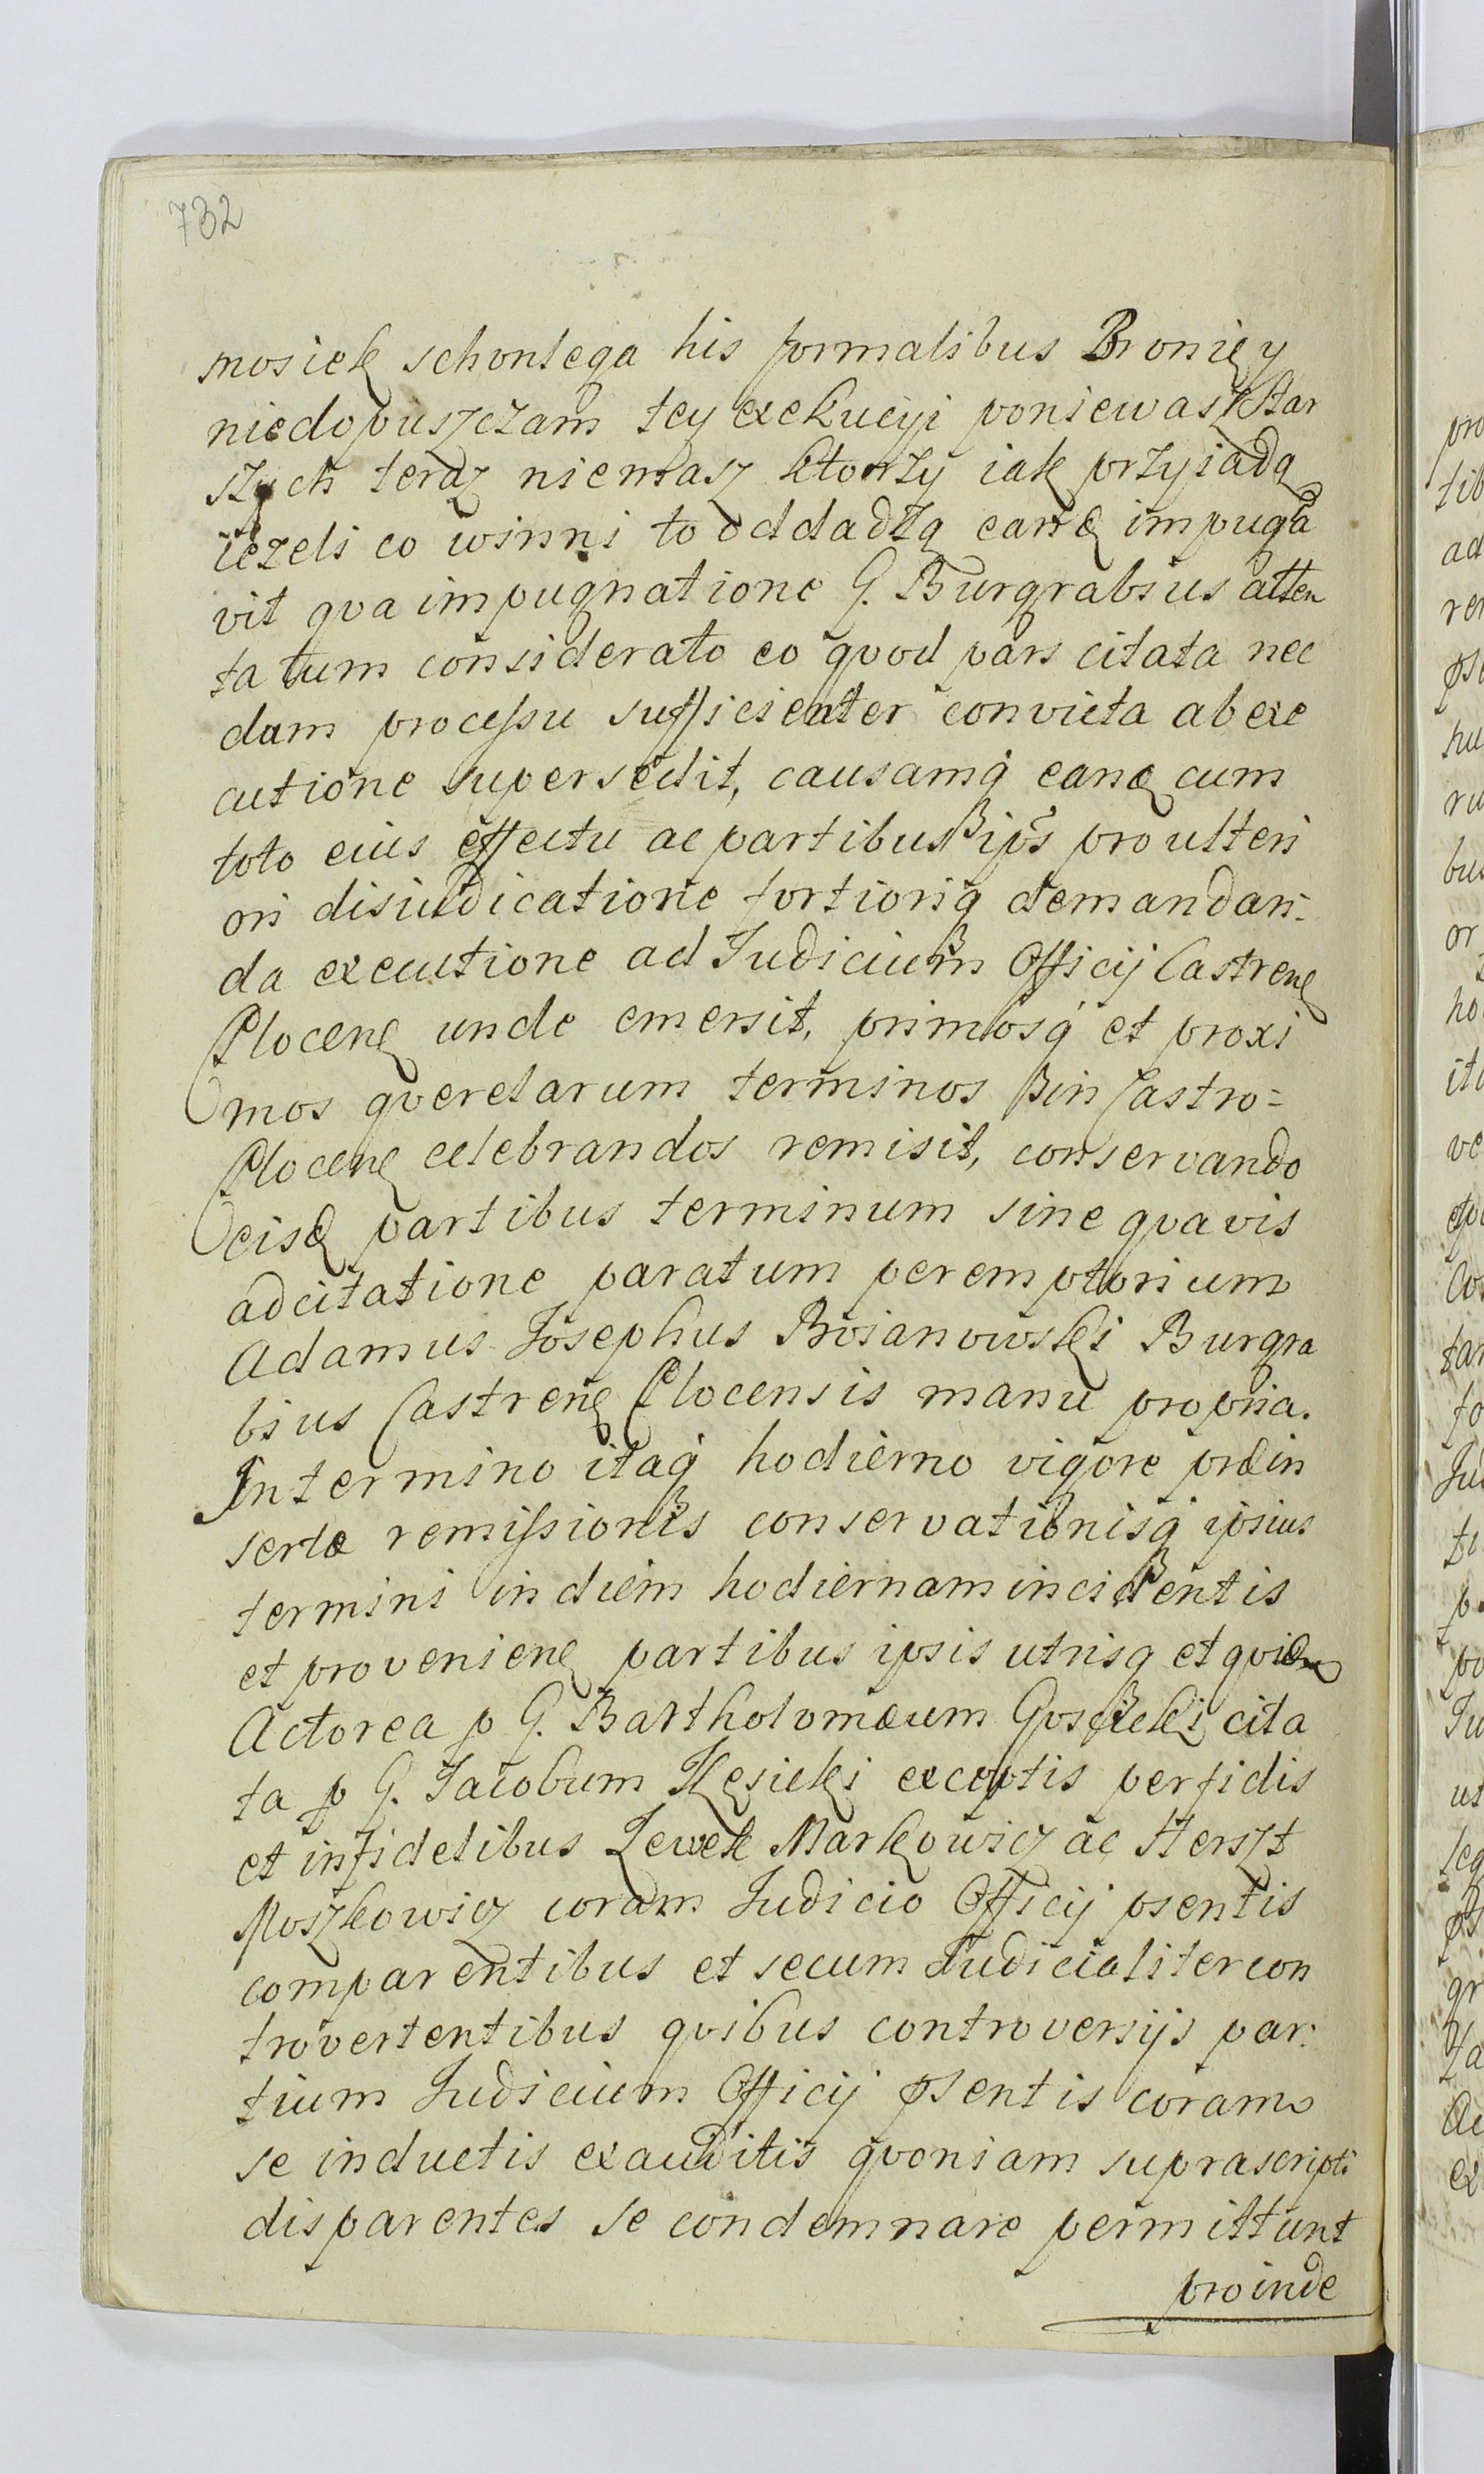 732
mosiek schonlega his formalibus Bronię y
niedopuszczam tey exekucyi poniewasz Star
szych teraz niemasz ktorzy iak przyiadą
iezeli co winni to oddadzą eanq impugna
vit qva impugnatione G. Burgrabius atten
ta tum considerato eo qvod pars citata nec
dum processu sufficienter convicta ab exe
cutione supersedit, causamq eanq cum
toto eius effectu ac partibus ips pro ulteri
ori disiudicatione fortioriq demandan-
da executione ad Iudicium Officij Castren
Plocen unde emersit, primosq et proxi
mos qverelarum terminos in Castro=
Plocen celebrandos remisit, conservando
eisd partibus terminum sine qvavis
adcitatione paratum peremptorium
Adamus Josephus Boianowski Burgra
bius Castren Plocensis manu propria.
In termino itaq hodierno vigore præin
sertæ remissionis conservationisq ipsius
termini in diem hodiernam incidentis
et provenien partibus ipsis utrisq et qvidem
Actorea p G. Bartholomæum Gosticki cita
ta p G. Iacobum Kęsicki exceptis perfidis
et infidelibus Lewek Markowicz ac Herszt
Moszkowicz coram Iudicio Officij psentis
comparentibus et secum Iudicialiter con
trovertentibus qvibus controversijs par:
tium Iudicium Officij psentis coram
se inductis exauditis qvoniam suprascripti
disparentes se condemnare permittunt
proinde
pro
tib
ad